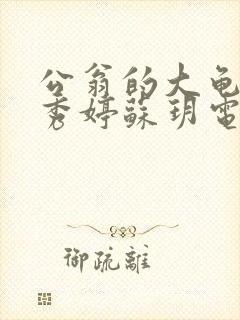 公翁的大龟
秀婷蘇玥電
御疏離